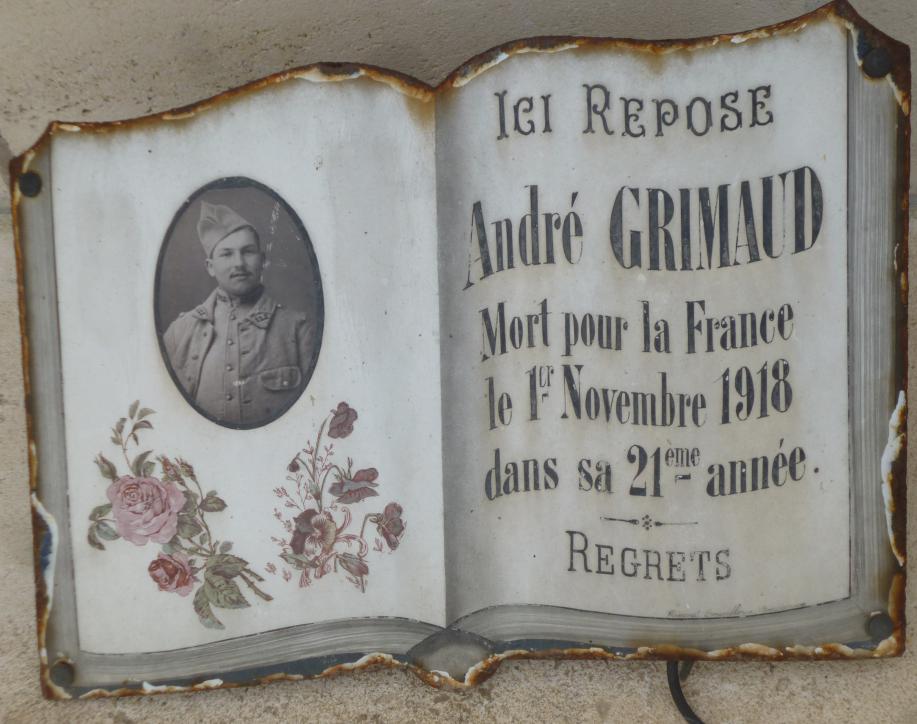 ICI REPOSE
André GRIMAUD
Mort pour la France
le 1er Novembre 1918
dans sa 21ème année.
REGRETS